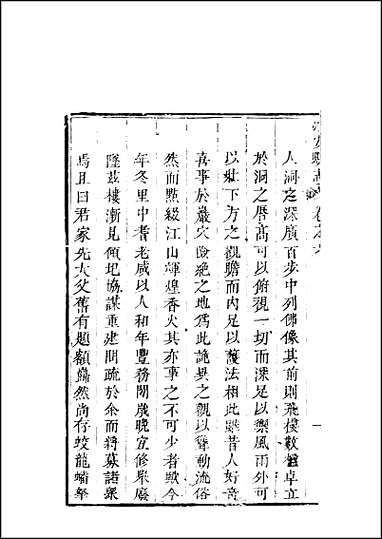 人洞之深廣百步中列佛像其前則飛樓數楹卓立
於洞之唇高可以俯視一切而深足以禦風雨外可
以壯下方之觀瞻而內足以護法相此雖昔人好奇
喜事於巖穴險絕之地爲此詭異之觀以聳動流俗
然而點綴江山輝煌香火其亦事之不可少者歟今
年冬里中耆老咸以人和年豐務閒歲晚宜修舉廢
墜茲樓漸見傾圮協謀重建間疏於余而將募諸衆
焉且曰君家先大父舊有題額巋然尚存蛟龍蟠拏